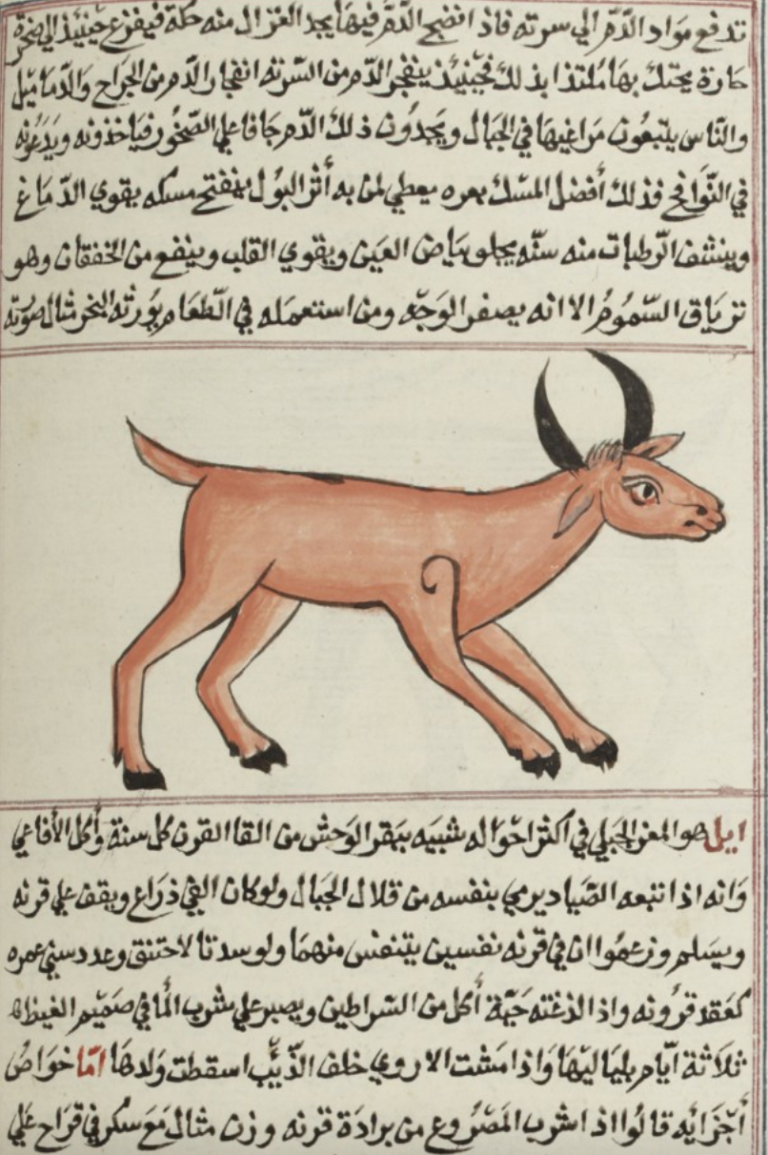 تدفع مواد الدّم الي سرته فاذا انضج الدّم فيها يجد الغزال منه حكة فيفزع حينيذ الي صخرة
حارة يحتك بها ملتذا بذلك فحينيذ ينفجر الدّم من السّرته انفجار الدّم من الجراح والدّماميل
والناس يلتبعون مراغيها في الجبال ويجدون ذلك الدّم جافا علي الصّخور فياخذونه ويدعونه
في النّوافج فذلك أفضل المسك بعره يعطي لمن به أثر البول ينفتح مسكه يقوي الدّماغ
وينشف الرّطبات منه سنّه يجلو بياض العين ويقوي القلب وينفع من الخفقان وهو
ترياق السّموم الا انه يصفر الوجه ومن استعمله في الطّعام يورثه البخر مثال صوته
ايل هو المعز الجبلي في اكثر احواله شبيه ببقر الوحش من القا القرن كل سنة وأكل الأفاعي
وانه اذا تبعه الصّياد يرمي بنفسه من قلال الجبال ولو كان الفي ذراع ويقف علي قرنه
ويسلم وزعموا ان في قرنه نفسين يتنفس منهما ولو سدتا لاختنق وعدد سني عمره
كعقد قرونه واذا لذغته حيّة أكل من السّراطين ويصبر علي شرب الما في صميم الغيظ
ثلاثة ايّام بلياليها واذا مشت الاروي خلف الذّيب اسقطت ولدها امّا خواصّ
أجزايه قالوا اذا شرب المصروع من برادة قرنه وزن مثال مع سكر في قراح علي